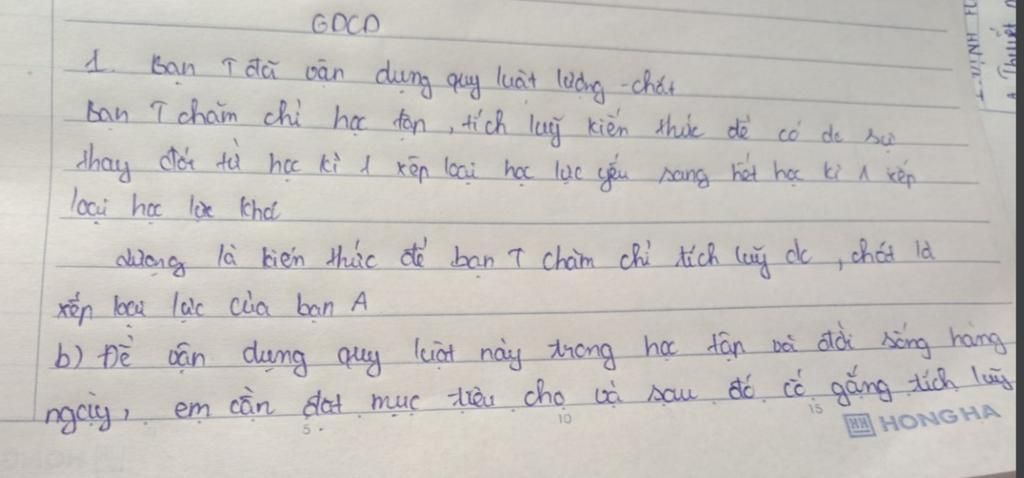 GDCD
1. Bạn T đã vận dụng quy luật lượng - chất
Bạn T chăm chỉ học tập, tích luỹ kiến thức để có đc sự
thay đổi từ học kì 1 xếp loại học lực yếu sang hết học kì 1 xếp
loại học lực khá
lượng là kiến thức để bạn T chăm chỉ tích luỹ đc, chất là
xếp loại lực của bạn A
b) Để vận dụng quy luật này trong học tập và đời sống hàng
ngày, em cần đạt mục tiêu cho và sau đó cố gắng tích luỹ
5 10 15
HH HONG HA